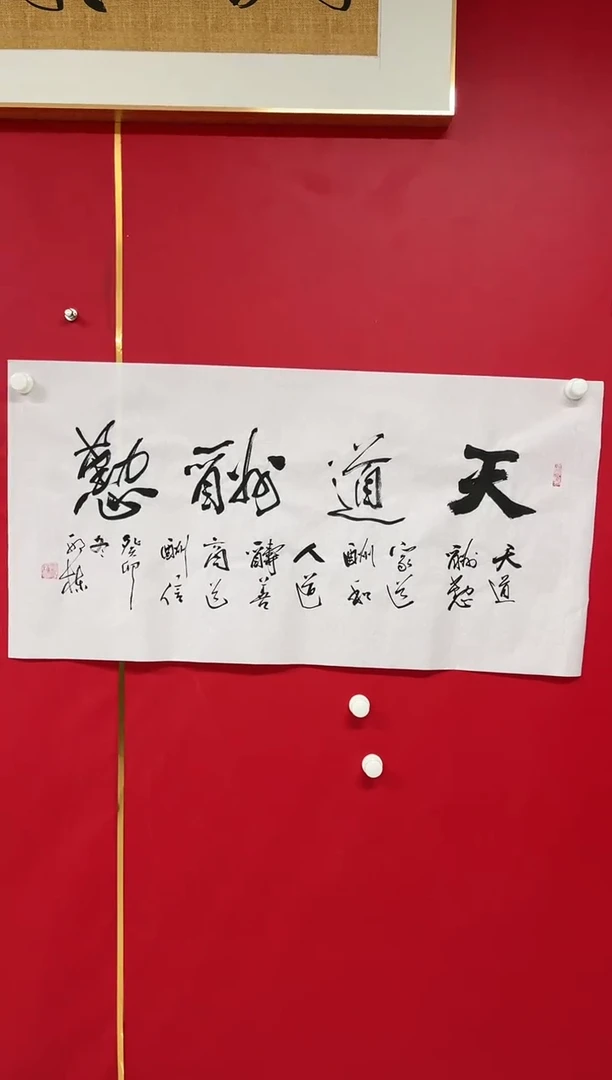 天道酬懃
天道
酬懃
家道
酬和
人道
醻善
商道
酬信
癸卯
冬